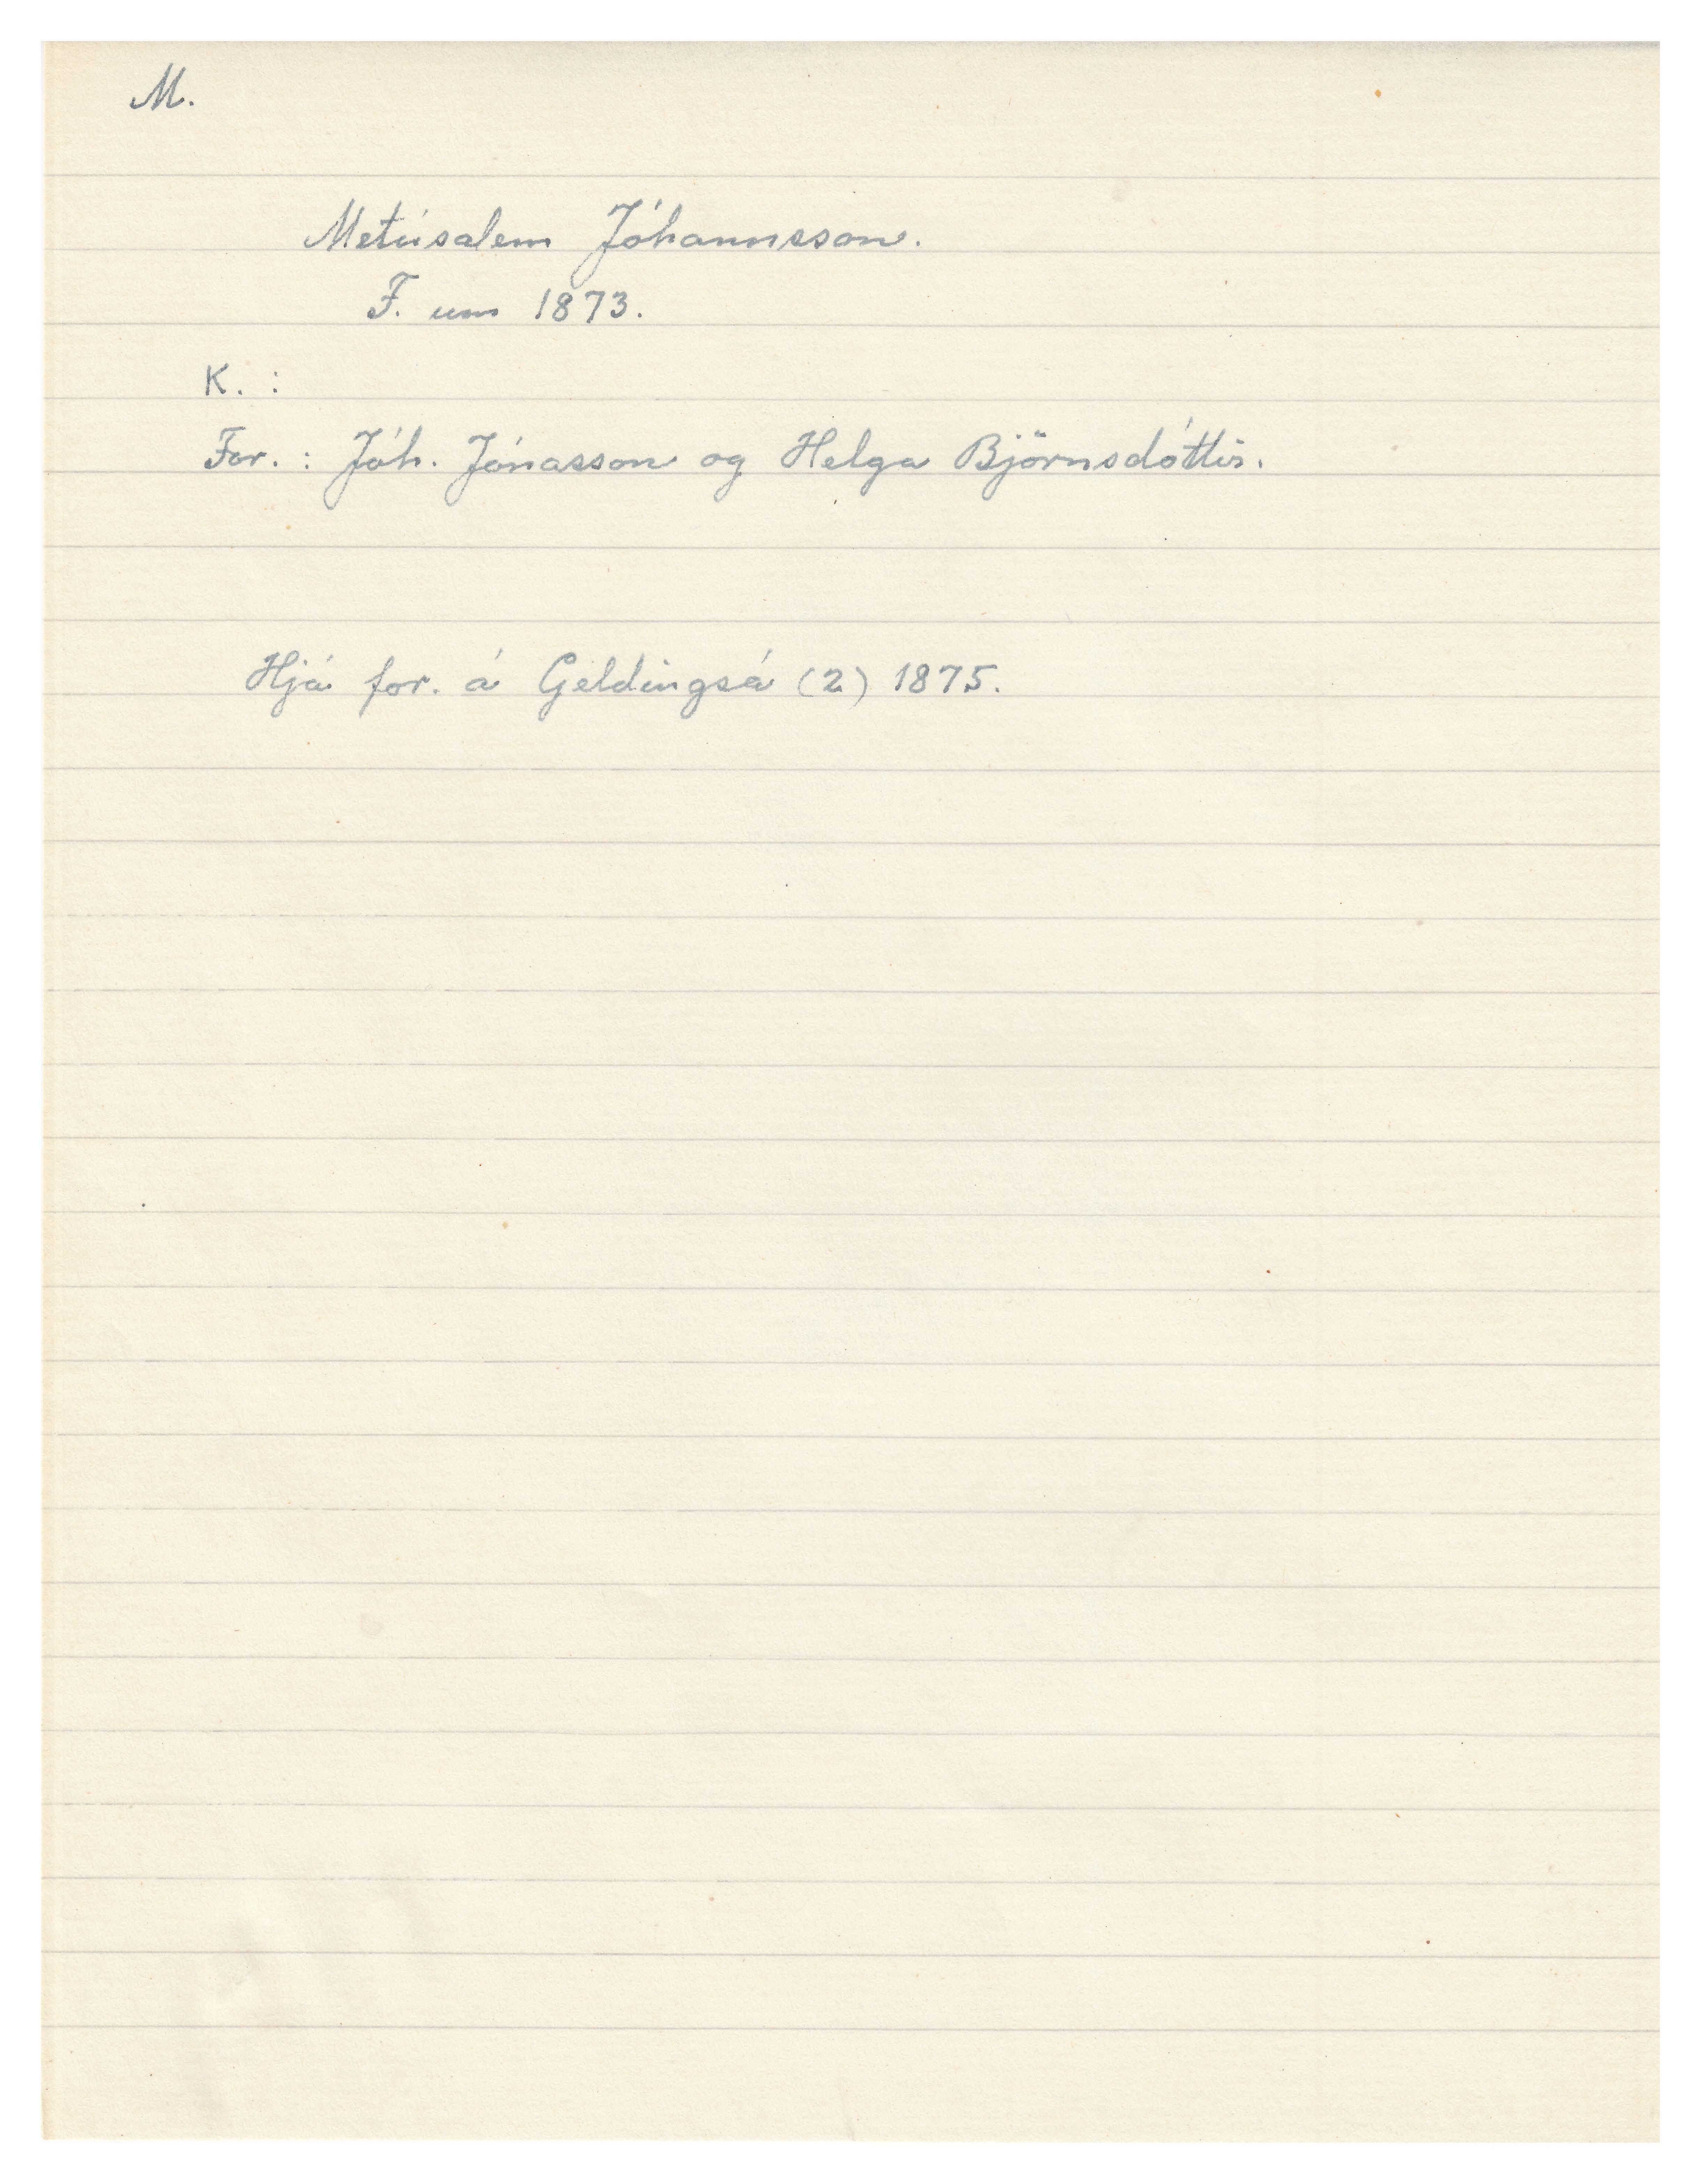 M.
Metúsalem Jóhannsson.
F. um 1873.
K. :
For. : Jóh. Jónasson og Helga Björnsdóttir.
Hjá for. á Geldingsá (2) 1875.